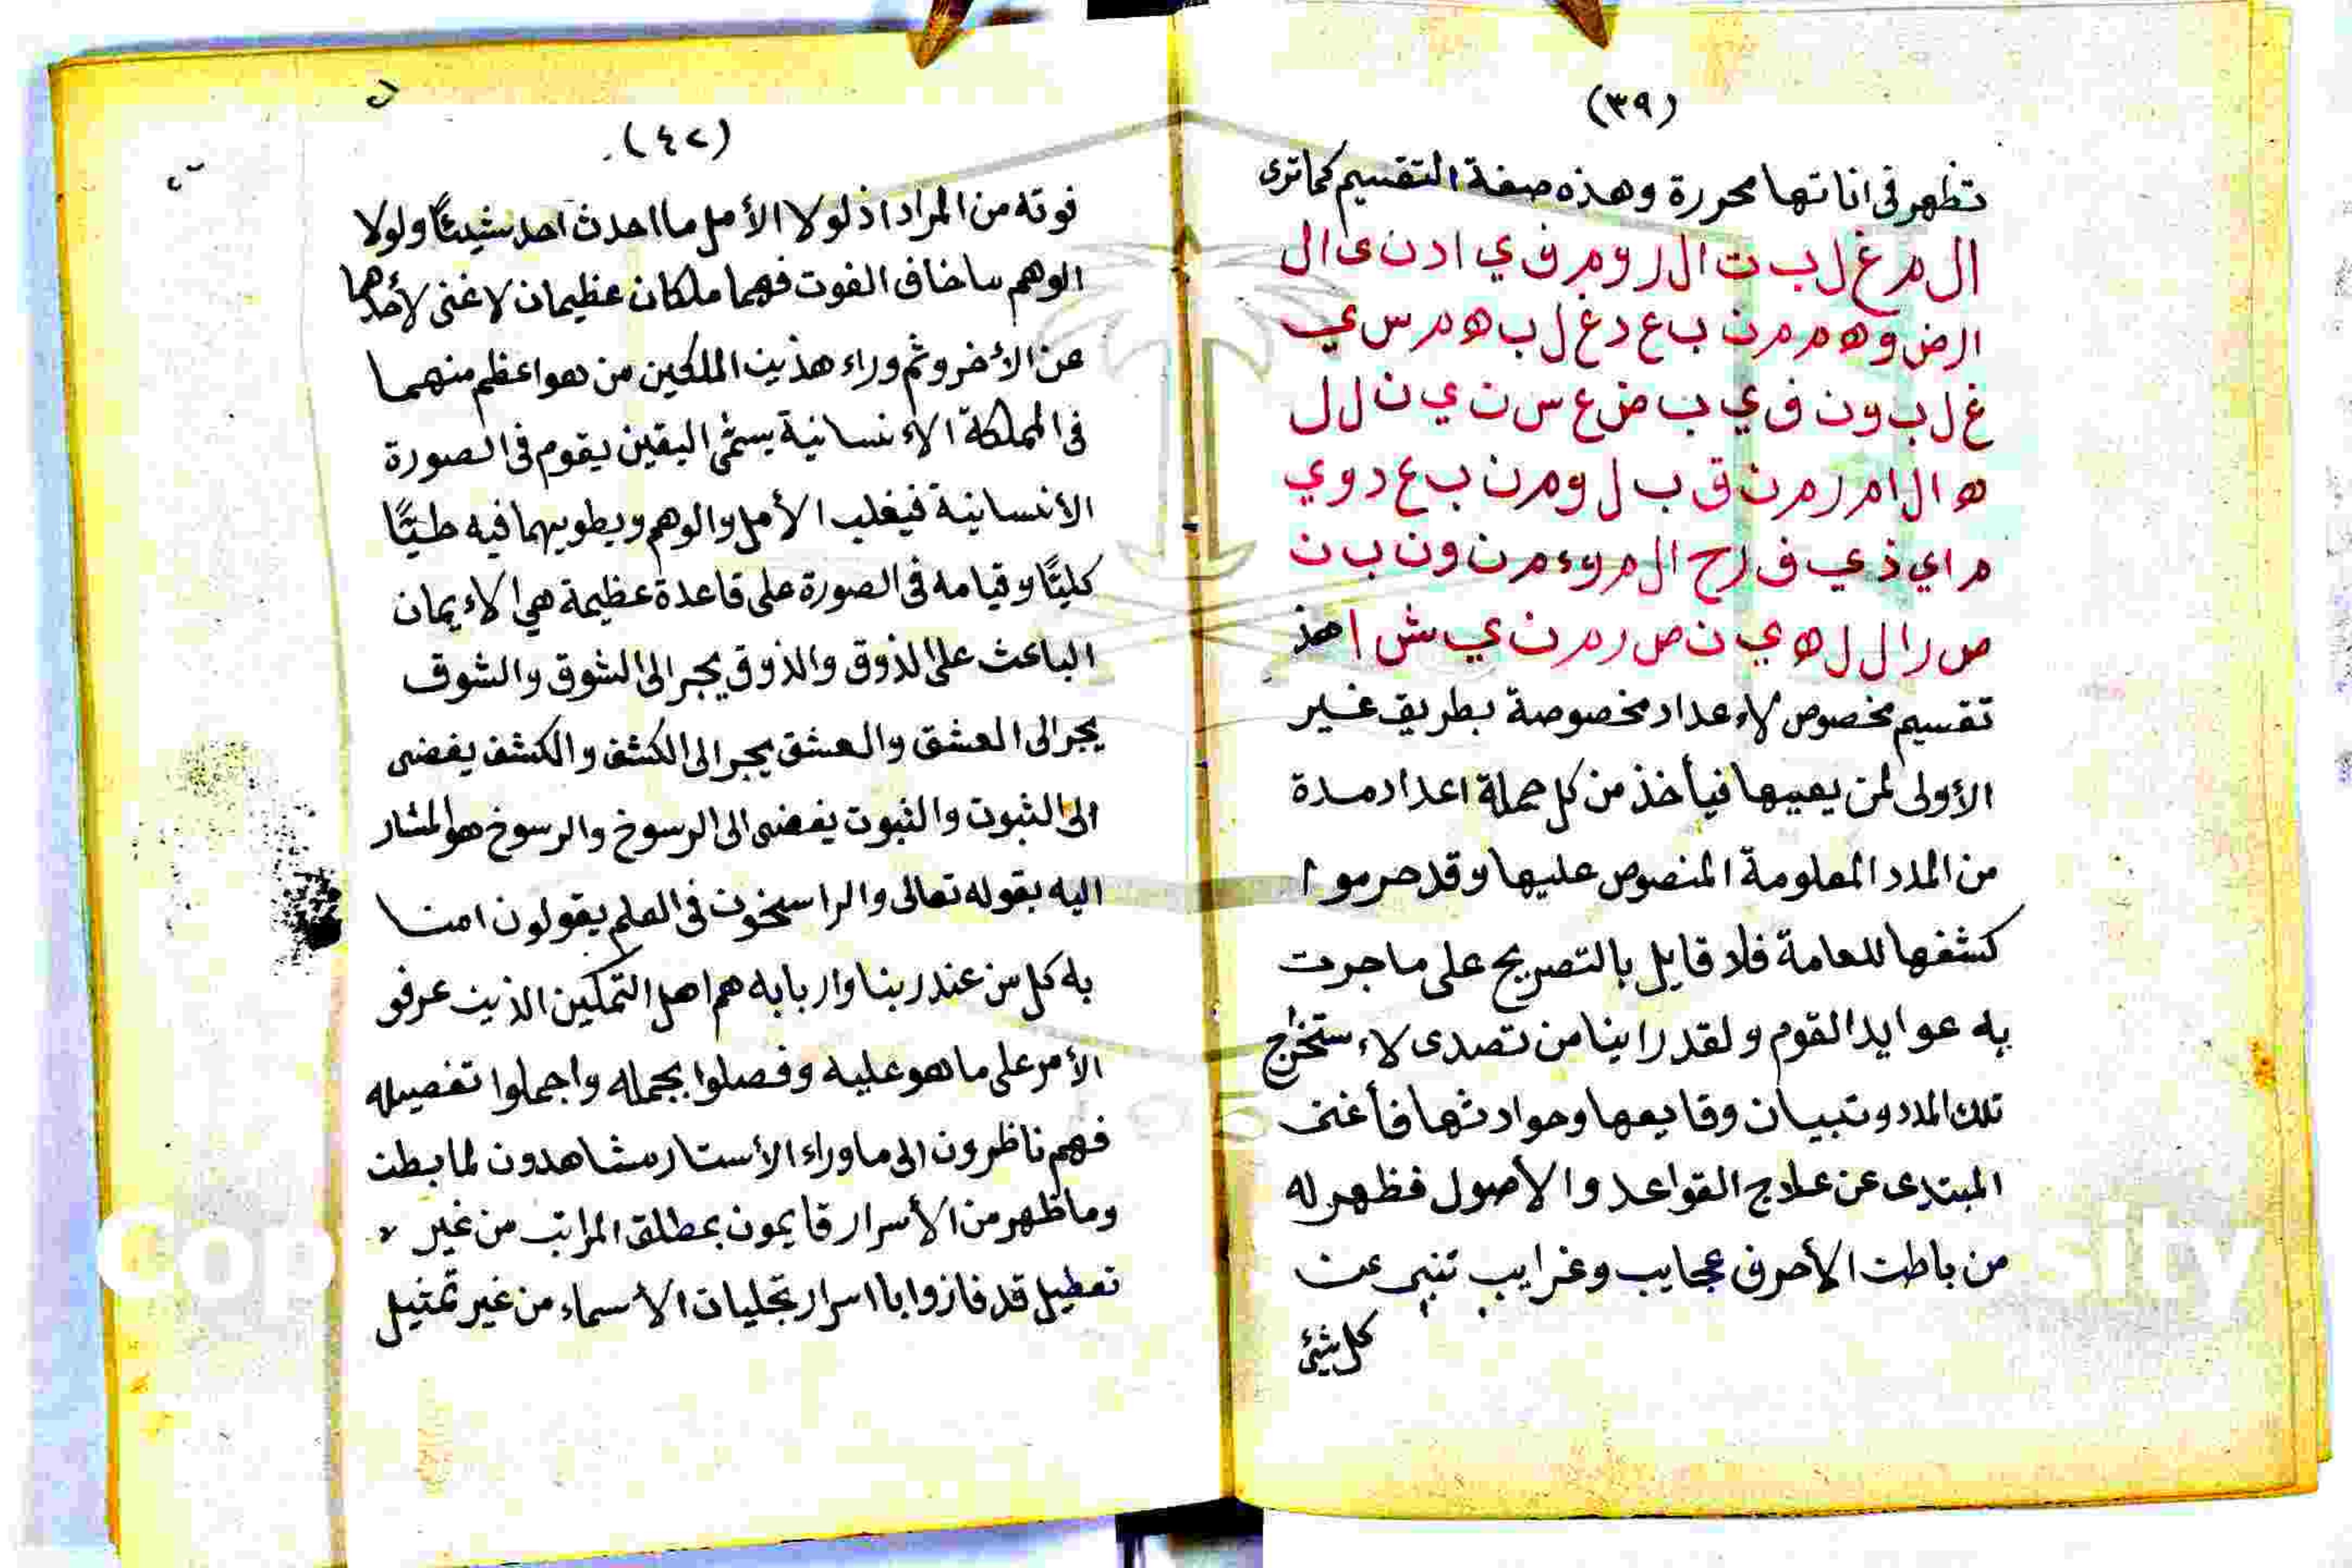 (٣٩)
تظهر فى اناتها محررة وهذه صفة التقسيم كما ترى
ال م غ ل ب ت ال ر و م ف ي ا د ن ى ال
ا ر ض و ه م م ن ب ع د غ ل ب ه م س ي
غ ل ب و ن ف ي ب ض ع س ن ي ن ل ل
ه ا ل ا م ر م ن ق ب ل و م ن ب ع د و ي
م ا ي ذ ي ف ر ح ا ل م و ء م ن و ن ب ن
ص ر ا ل ل ه ي ن ص ر م ن ي ش ا هذ
تقسيم مخصوص لاءعداد مخصوصة بطريق غير
الأولى لمن يعيها فيأخذ من كل جملة اعداد مدة
من المدد المعلومة المنصوص عليها وقد حرموا
كشفها للعامة فلا قايل بالتصريح على ما جرت
به عوايد القوم ولقد راينا من تصدى لاءستخراج
تلك المدد وتبيان وقايعها وحوادثها فأغنى
المبتدى عن علاج القواعد والأصول فظهر له
من باطن الأحرف عجايب وغرايب تنبى عن
كل شئ
(٤٢)
فوته من المراد اذ لولا الأمل ما احدث احد شيئًا ولولا
الوهم ما خاف الفوت فهما ملكان عظيمان لا غنى لأحدهما
عن الأخر وثم وراء هذين الملكين من هو اعظم منهما
فى المملكة الاءنسانية يسمى اليقين يقوم فى الصورة
الأنسانية فيغلب الأمل والوهم ويطويهما فيه طيًّا
كليًّا وقيامه فى الصورة على قاعدة عظيمة هي الاءيمان
الباعث على الذوق والذوق يجر الى الشوق والشوق
يجر الى العشق والعشق يجر الى الكشف والكشف يفضى
الى الثبوت والثبوت يفضى الى الرسوخ والرسوخ هو المشار
اليه بقوله تعالى والراسخون فى العلم يقولون امنا
به كل من عند ربنا واربابه هم اهل التمكين الذين عرفو
الأمر على ما هو عليه وفصلوا بجمله واجملوا تفصيله
فهم ناظرون الى ما وراء الأستار مشاهدون لما بطن
وما ظهر من الأسرار قايمون بمطلق المراتب من غير
تعطيل قد فازوا باسرار تجليات الأسماء من غير تمثيل